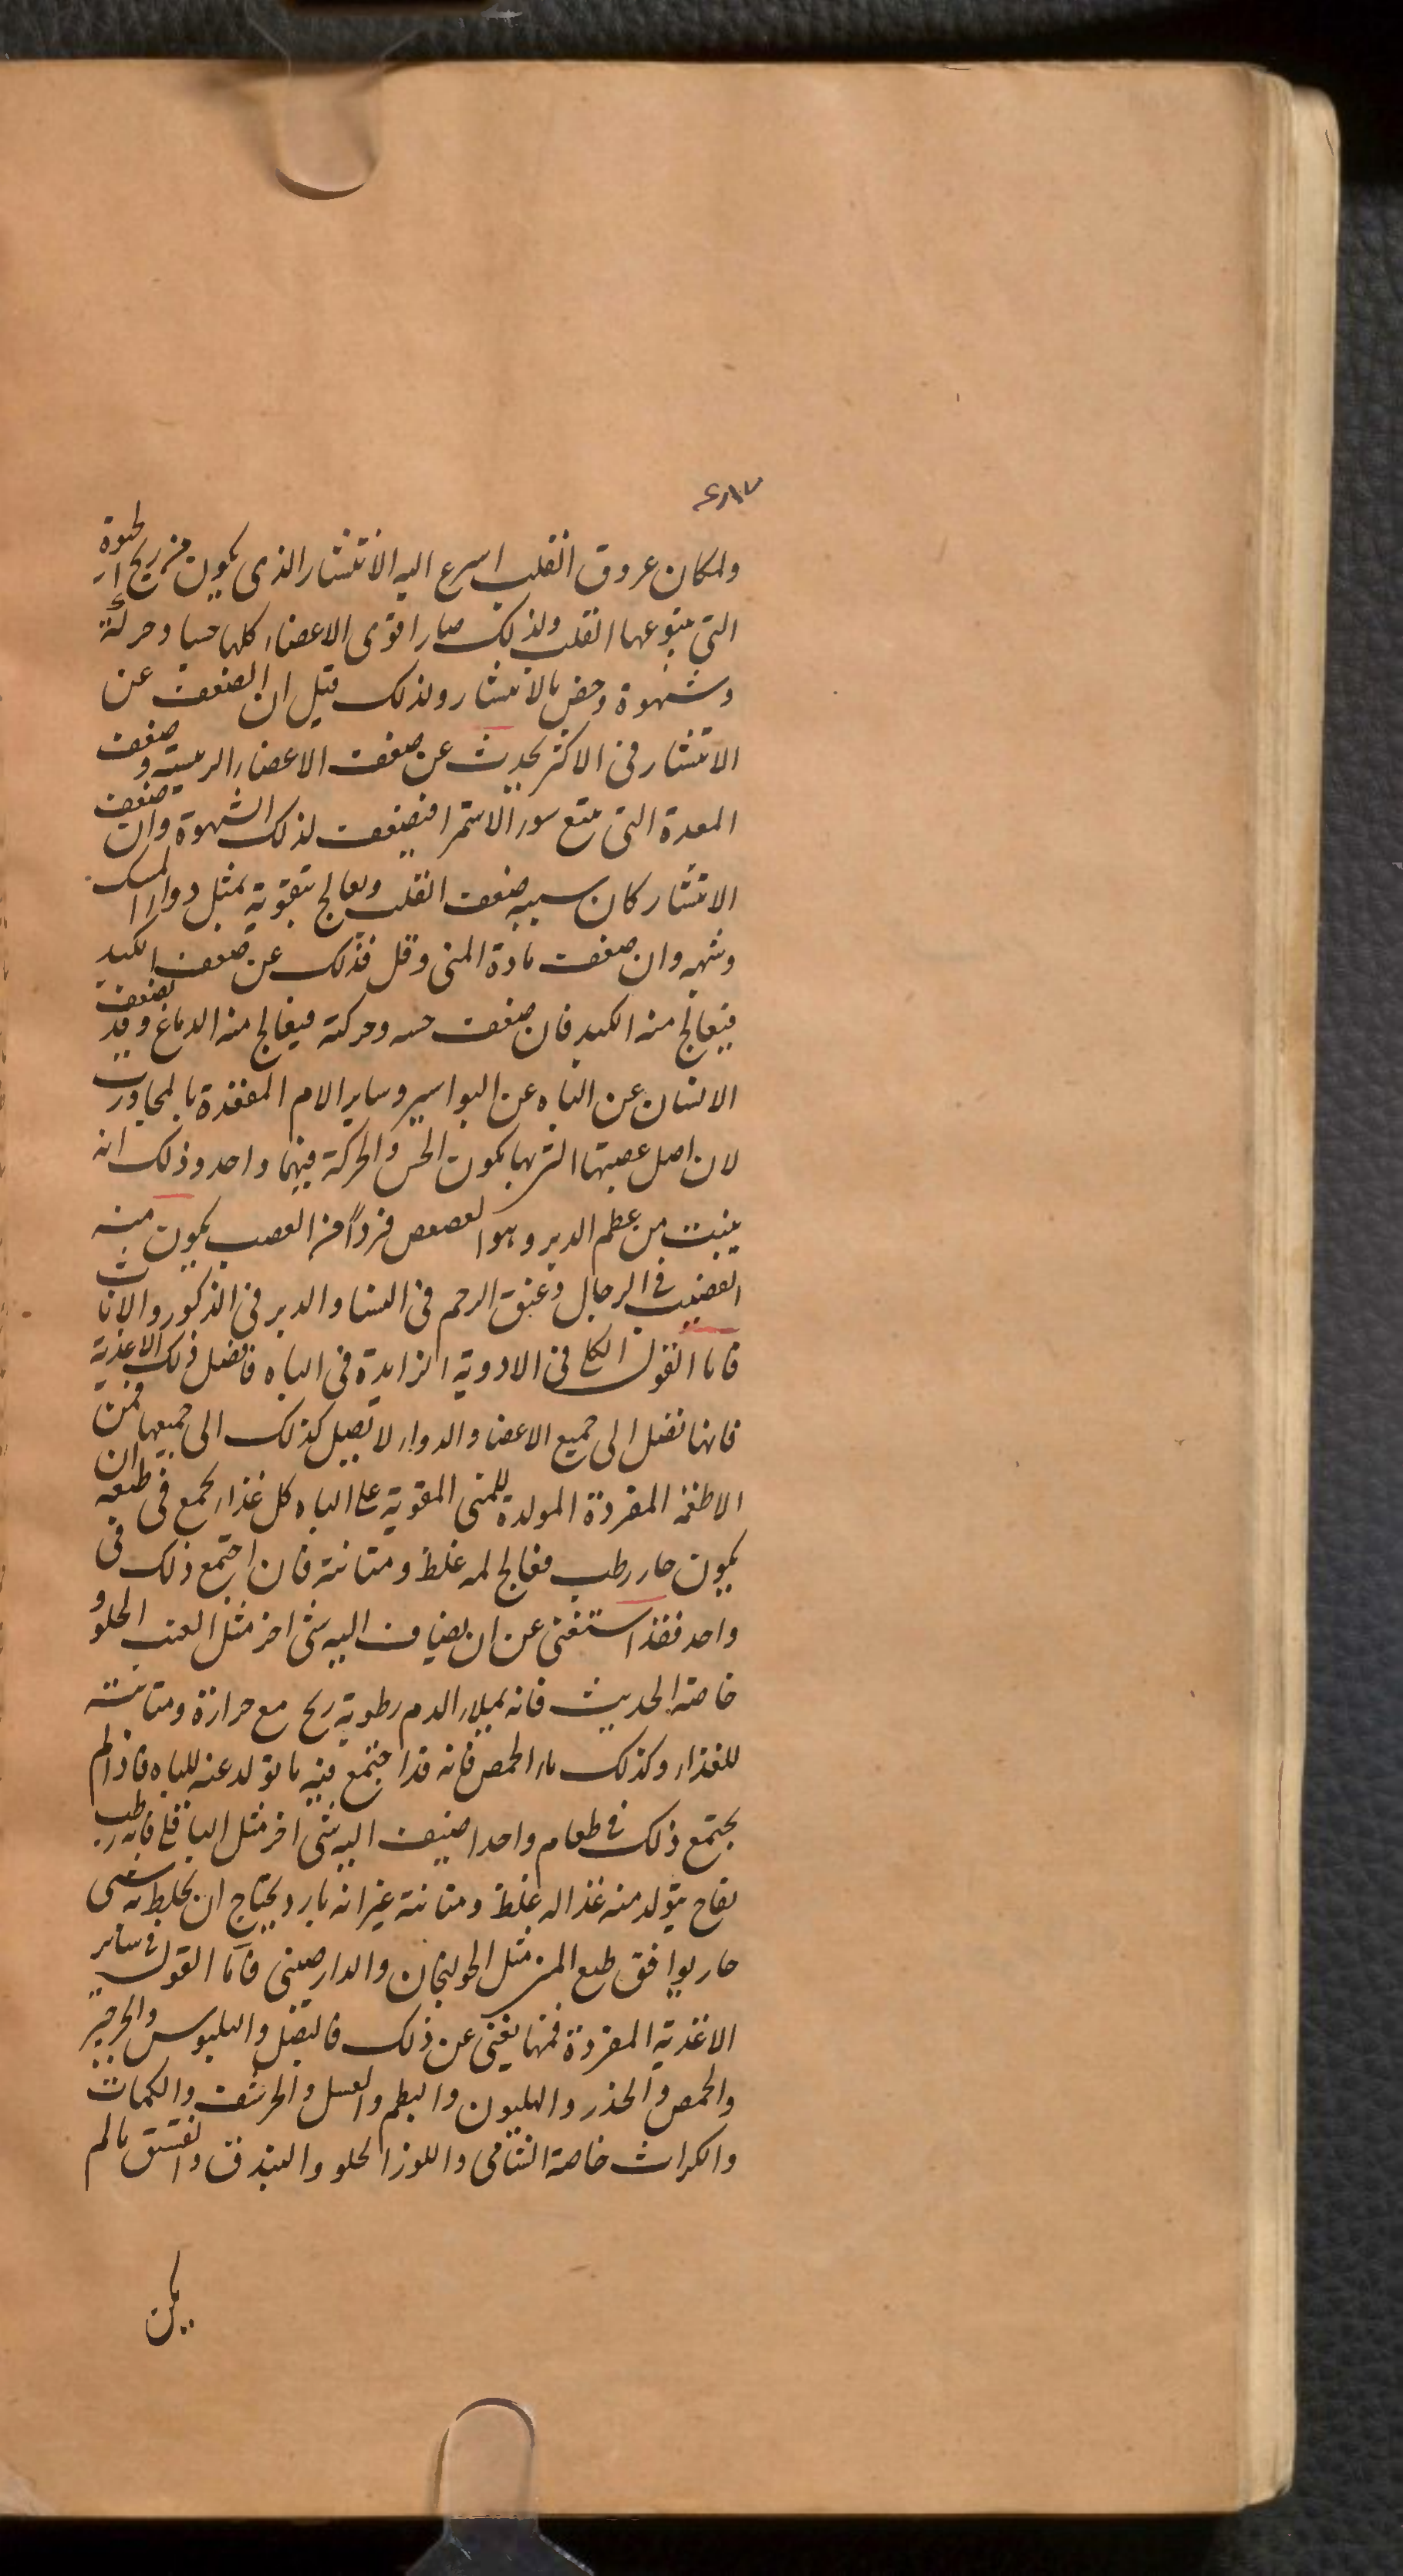 ولمكان عروق القلب اسرع اليه الانتشار الذى يكون من ريح الحيوة
التى ينبوعها القلب ولذلك صار اقوى الاعضاء كلها حسا وحركة
وشهوة وخص بالانتشار ولذلك قيل ان الضعف عن
الانتشار فى الاكثر يحدث عن ضعف الاعضاء الرئيسة وضعف
المعدة التى يتبع سوء الاستمرا فيضعف لذلك الشهوة وان ضعف
الانتشار كان سببه ضعف القلب ويعالج بتقوية بمثل دواء المسك
وشبهه وان ضعف مادة المنى وقل فذلك عن ضعف الكبد
فيعالج منه الكبد فان ضعف حسه وحركته فيعالج منه الدماغ وقد يضعف
الانسان عن الباه عن البواسير وساير الام المقعدة بالمجاورت
لان اصل عصبتها التى بها يكون الحس والحركة فيهما واحد وذلك انه
ينبت من عظم الدبر وهو العصعص فرداً من العصب يكون منه
القضيب فى الرجال وعنق الرحم فى النسا والدبر فى الذكور والاناث
فاما القول الكلى فى الادوية الزايدة فى الباه فافضل ذلك الاغذية
فانها تصل الى جميع الاعضا والدواء لا يصل كذلك الى جميعها فمن
الاطعمة المفردة المولدة للمنى المقوية على الباه كل غذاء يجمع فى طبعه ان
يكون حار رطب معالج له غلظ ومتانة فان اجتمع ذلك فى
واحد فقد استغنى عن ان يضاف اليه شى اخر مثل العنب الحلو و
خاصة الحديث فانه يملاء الدم رطوبة ريح مع حرارة ومتانته
للغذاء وكذلك ماء الحمص فانه قد اجتمع فيه ما تولد عنه للباه فاذا لم
يجتمع ذلك فى طعام واحد اضيف اليه شى اخر مثل الباقلى فانه رطب
نفاخ يتولد منه غذا له غلظ ومتانة غير انه بارد يحتاج ان يخلط به شى
حار يوافق طبع المنى مثل الخولنجان والدارصينى فاما القول فى ساير
الاغذية المفردة فمنها يغنى عن ذلك فالبصل والبلبوس والجرجير
والحمص والجذر والهليون والبطم والعسل والحرشف والكمات
والكراث خاصة الشامى واللوز الحلو والبندق والفستق مالم
يكن